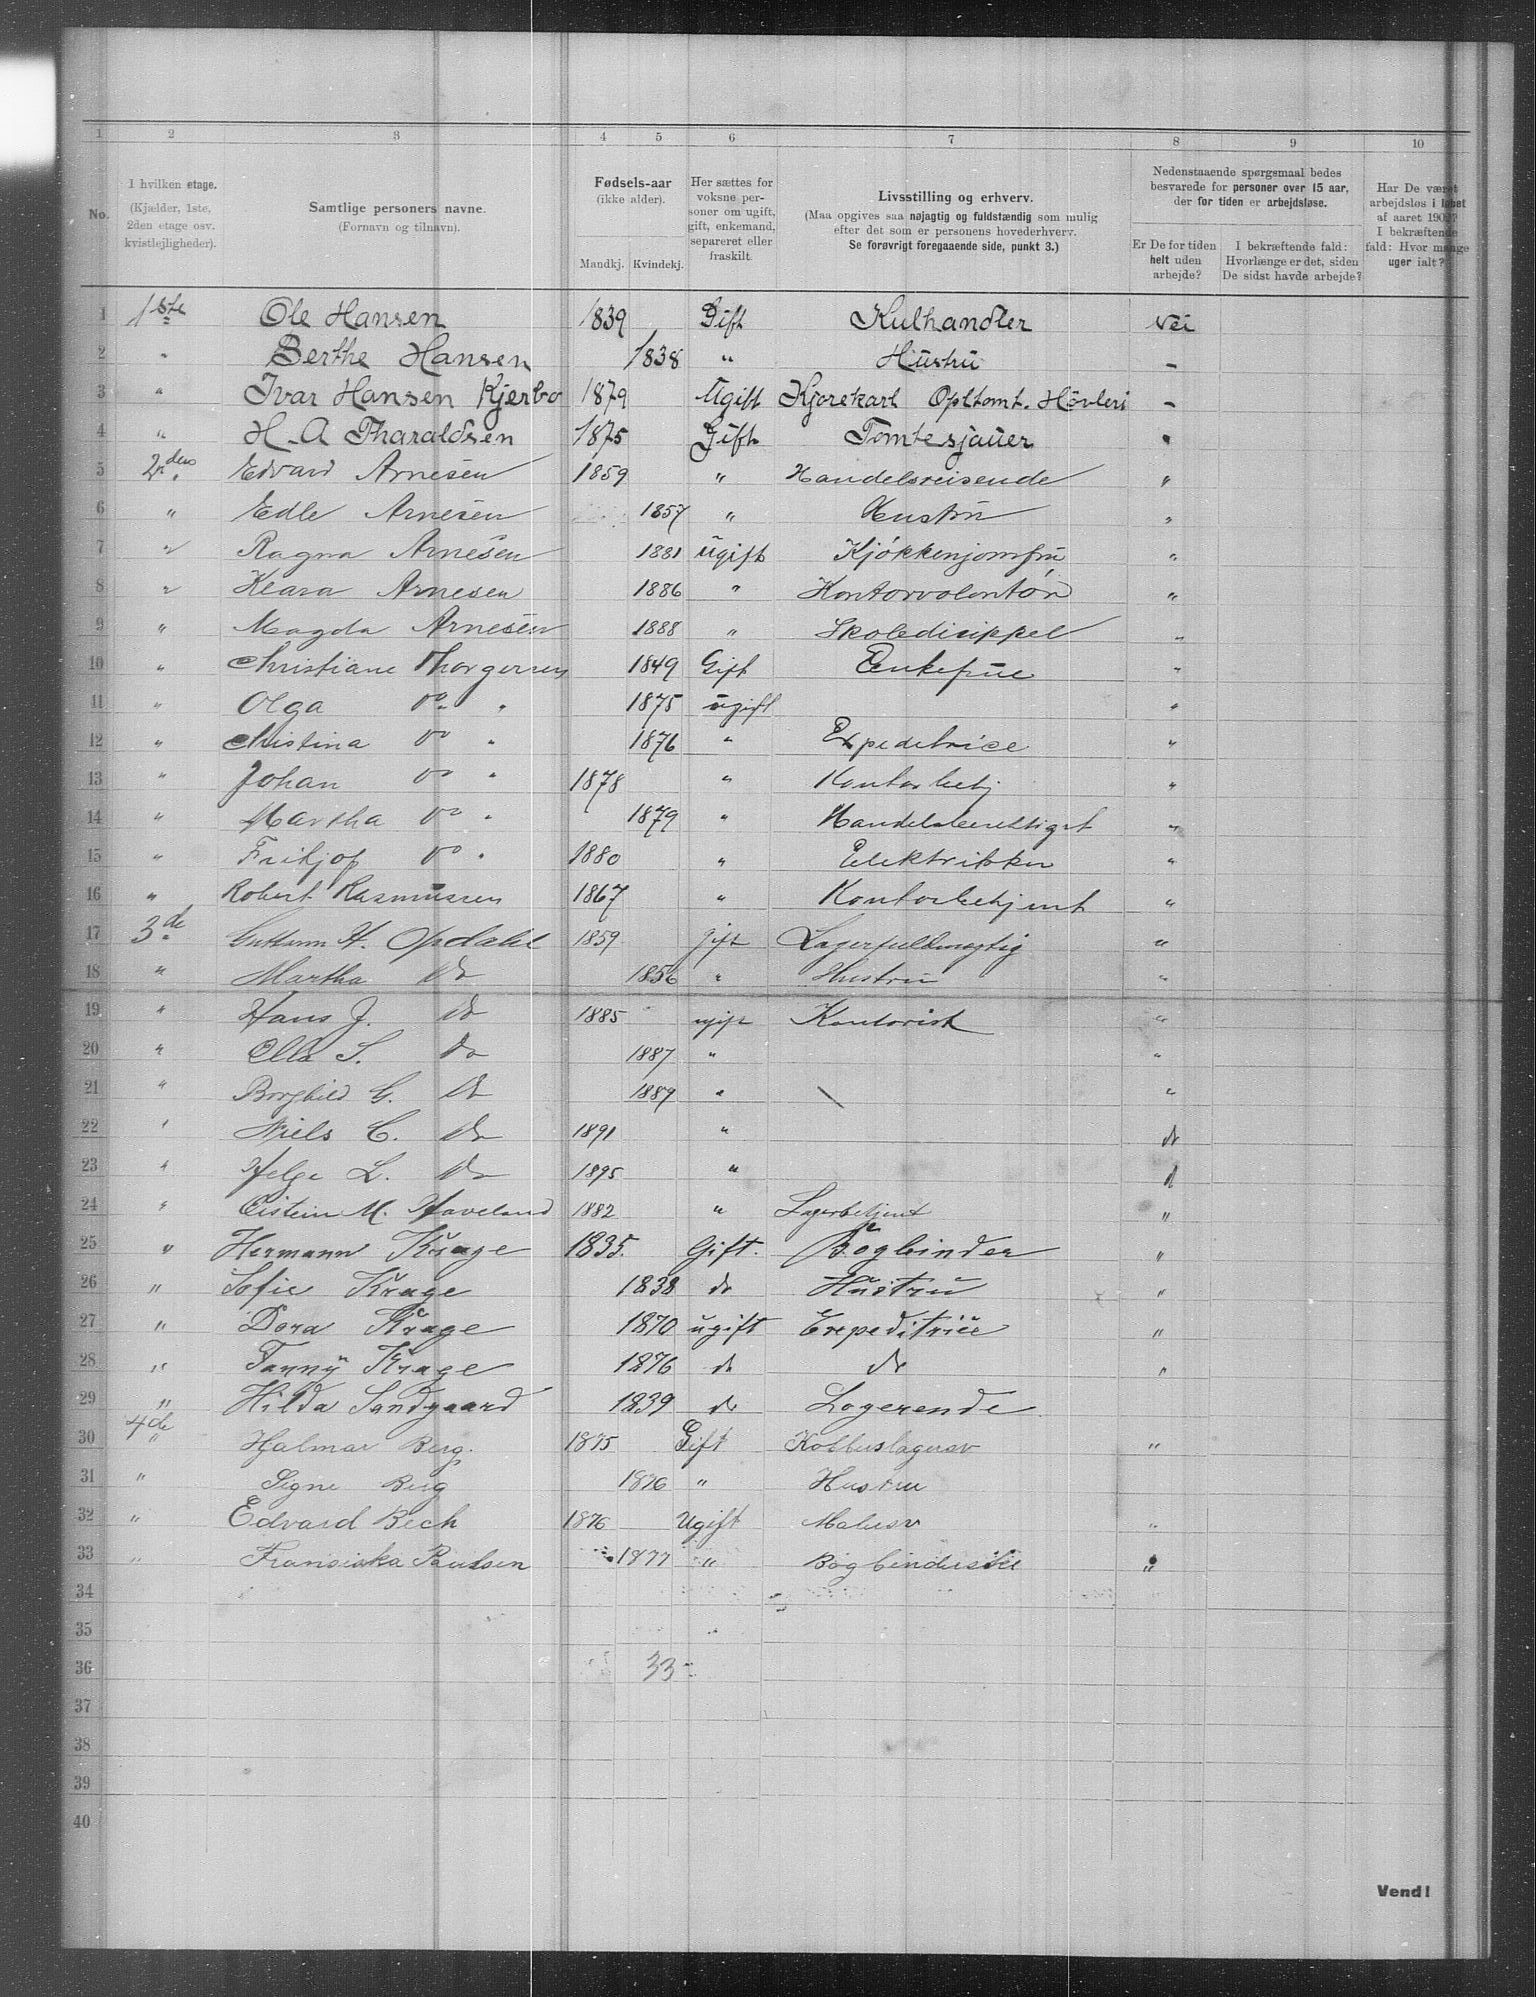 1 2 3 4 5 6 7 8 9 10
No.
I hvilken etage.
(Kjælder, 1ste,
2den etage osv.
kvistlejligheder).
Samtlige personers navne.
(Fornavn og tilnavn).
Fødsels-aar
(ikke alder).
Mandkj. Kvindekj.
Her sættes for
voksne per-
soner om ugift,
gift, enkemand,
separeret eller
fraskilt.
Livsstilling og erhverv.
(Maa opgives saa nøjagtig og fuldstændig som mulig
efter det som er personens hovederhverv.
Se forøvrigt foregaaende side, punkt 3.)
Nedenstaaende spørgsmaal bedes
besvarede for personer over 15 aar,
der for tiden er arbejdsløse.
Er De for tiden
helt uden
arbejde?
I bekræftende fald:
Hvorlænge er det, siden
De sidst havde arbejde?
Har De været
arbejdsløs i løbet
af aaret 1902?
I bekræftende
fald: Hvor mange
uger ialt?
1 1ste Ole Hansen 1839 Gift Kulhandler Nei
2 " Berthe Hansen 1838 " Hustru -
3 " Ivar Hansen Kjerbo 1879 Ugift Kjørekarl Opltomt. Høvleri -
4 " H. A Tharaldsen 1875 Gift Tomtesjauer "
5 2den Edvard Arnesen 1859 " Handelsreisende "
6 " Edle Arnesen 1857 " Hustru "
7 " Ragna Arnesen 1881 ugift Kjøkkenjomfru "
8 " Klara Arnesen 1886 " Kontorvolontør "
9 " Magda Arnesen 1888 " Skoledisippel "
10 " Christiane Thorgersen 1849 Gift Enkefrue "
11 " Olga do " 1875 ugift "
12 " Christina do " 1876 " Expeditrice "
13 " Johan do " 1878 " Kontorbetj "
14 " Martha do " 1879 " Handelsberettiget "
15 " Frithjof do " 1880 " Elektriker "
16 " Robert Rasmussen 1867 " Kontorbetjent "
17 3de H. Opdahl 1859 gift Lagerfuldmægtig "
18 " Martha do 1856 " Hustru "
19 " Hans J. do 1885 ugift Kontorist "
20 " Ella S. do 1887 " "
21 " Borghild G. do 1889 " \ "
22 " Niels C. do 1891 " do
23 " Helge L. do 1895 " d
24 " Eistein M. Haveland 1882 " Lagerbetjent "
25 " Hermann Krage 1835. Gift. Bogbinder "
26 " Sofie Krage 1838 do Hustru "
27 " Dora Krage 1870 ugift Expeditrice "
28 " Fanny Krage 1876 do do "
29 " Hilda Sandgaard 1839 do Logerende
30 4de " Hjalmar Berg. 1875 Gift Kobberslagersv "
31 " Signe Berg 1876 " Hustru
32 " Edvard Bech 1876 Ugift Malersv "
33 " Fransiska Paulsen 1877 " Bogbinderske "
34
35
36 33
37
38
39
40
Vend!